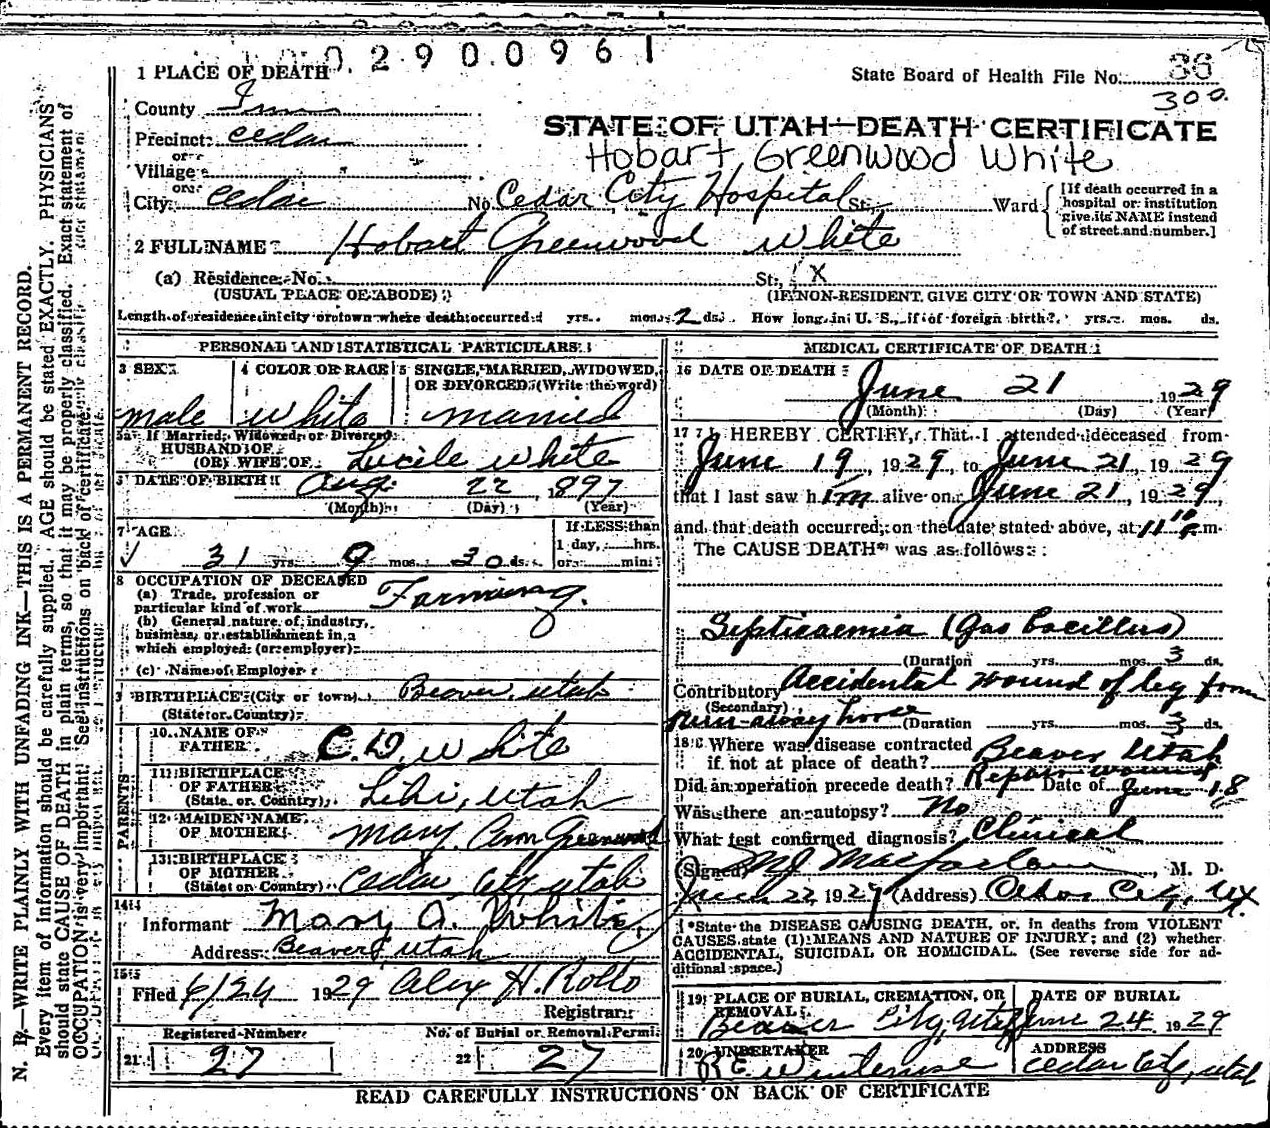 2900961
1 PLACE OF DEATH
State Board of Health File No. 36
300
County Iron
STATE OF UTAH—DEATH CERTIFICATE
Precinct Cedar
Hobart Greenwood White
or
Village
or
City Cedar No. Cedar City Hospital St., Ward
[If death occurred in a hospital or institution give its NAME instead of street and number.]
2 FULL NAME Hobart Greenwood White
(a) Residence. No. St., X
(USUAL PLACE OF ABODE) (IF NON-RESIDENT, GIVE CITY OR TOWN AND STATE)
Length of residence in city or town where death occurred yrs. mos. 2 ds. How long in U. S., if of foreign birth? yrs. mos. ds.
PERSONAL AND STATISTICAL PARTICULARS
3 SEX 4 COLOR OR RACE 5 SINGLE, MARRIED, WIDOWED, OR DIVORCED, (Write the word)
male white married
5a If Married, Widowed, or Divorced
HUSBAND OF
(OR) WIFE OF Lucile White
DATE OF BIRTH Aug 22, 1897
(Month) (Day) (Year)
7 AGE If LESS than
1 day, hrs.
31 yrs. 9 mos. 30 ds. or min.
8 OCCUPATION OF DECEASED
(a) Trade, profession or
particular kind of work Farming.
(b) General nature of industry,
business, or establishment in
which employed (or employer)
(c) Name of Employer
9 BIRTHPLACE (City or town) Beaver, Utah
(State or Country)
PARENTS
10 NAME OF
FATHER C. D. White
11 BIRTHPLACE
OF FATHER
(State or Country) Lehi, Utah
12 MAIDEN NAME
OF MOTHER Mary Ann Greenwood
13 BIRTHPLACE
OF MOTHER
(State or Country) Cedar City Utah
14
Informant Mary A. White
Address Beaver, Utah
15
Filed 6/24 1929 Alex H. Rollo
Registrar
Registered Number No. of Burial or Removal Permit
21 27 22 27
MEDICAL CERTIFICATE OF DEATH
16 DATE OF DEATH June 21 1929
(Month) (Day) (Year)
17 I HEREBY CERTIFY, That I attended deceased from
June 19, 1929, to June 21, 1929
that I last saw him alive on June 21, 1929,
and that death occurred, on the date stated above, at 11 10 P. m.
The CAUSE DEATH* was as follows:
Septicaemia (Gas bacillus)
(Duration yrs. mos. 3 ds.
Contributory Accidental wound of leg from
(Secondary)
run-away horse (Duration yrs. mos. 3 ds.
18 Where was disease contracted
if not at place of death? Beaver Utah
Did an operation precede death? Repair wound Date of June 18
Was there an autopsy? No
What test confirmed diagnosis? Clinical
(Signed) M. J. Macfarlane, M. D.
June 22, 1929 (Address) Cedar City, Ut.
*State the DISEASE CAUSING DEATH, or, in deaths from VIOLENT
CAUSES state (1) MEANS AND NATURE OF INJURY; and (2) whether
ACCIDENTAL, SUICIDAL OR HOMICIDAL. (See reverse side for ad-
ditional space.)
19 PLACE OF BURIAL, CREMATION, OR REMOVAL DATE OF BURIAL
Beaver City, Utah June 24 1929
20 UNDERTAKER ADDRESS
Cedar City, Utah
READ CAREFULLY INSTRUCTIONS ON BACK OF CERTIFICATE
N. B.—WRITE PLAINLY WITH UNFADING INK—THIS IS A PERMANENT RECORD.
Every item of information should be carefully supplied. AGE should be stated EXACTLY. PHYSICIANS
should state CAUSE OF DEATH in plain terms, so that it may be properly classified. Exact statement of
OCCUPATION is very important. See instructions on back of certificate.